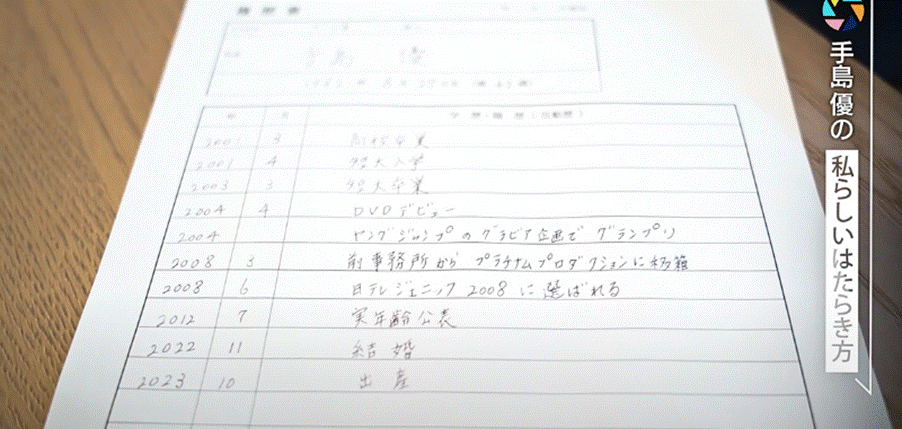 履歴書
手島 優
学歴・職歴(活動歴)
2001 3 高校卒業
2001 4 短大入学
2003 3 短大卒業
2004 4 DVDデビュー
2004 ヤングジャンプのグラビア企画でグランプリ
2008 3 前事務所からプラチナムプロダクションに移籍
2008 6 日テレジェニック2008に選ばれる
2012 7 実年齢公表
2022 11 結婚
2023 10 出産
手島優の
私らしいはたらき方